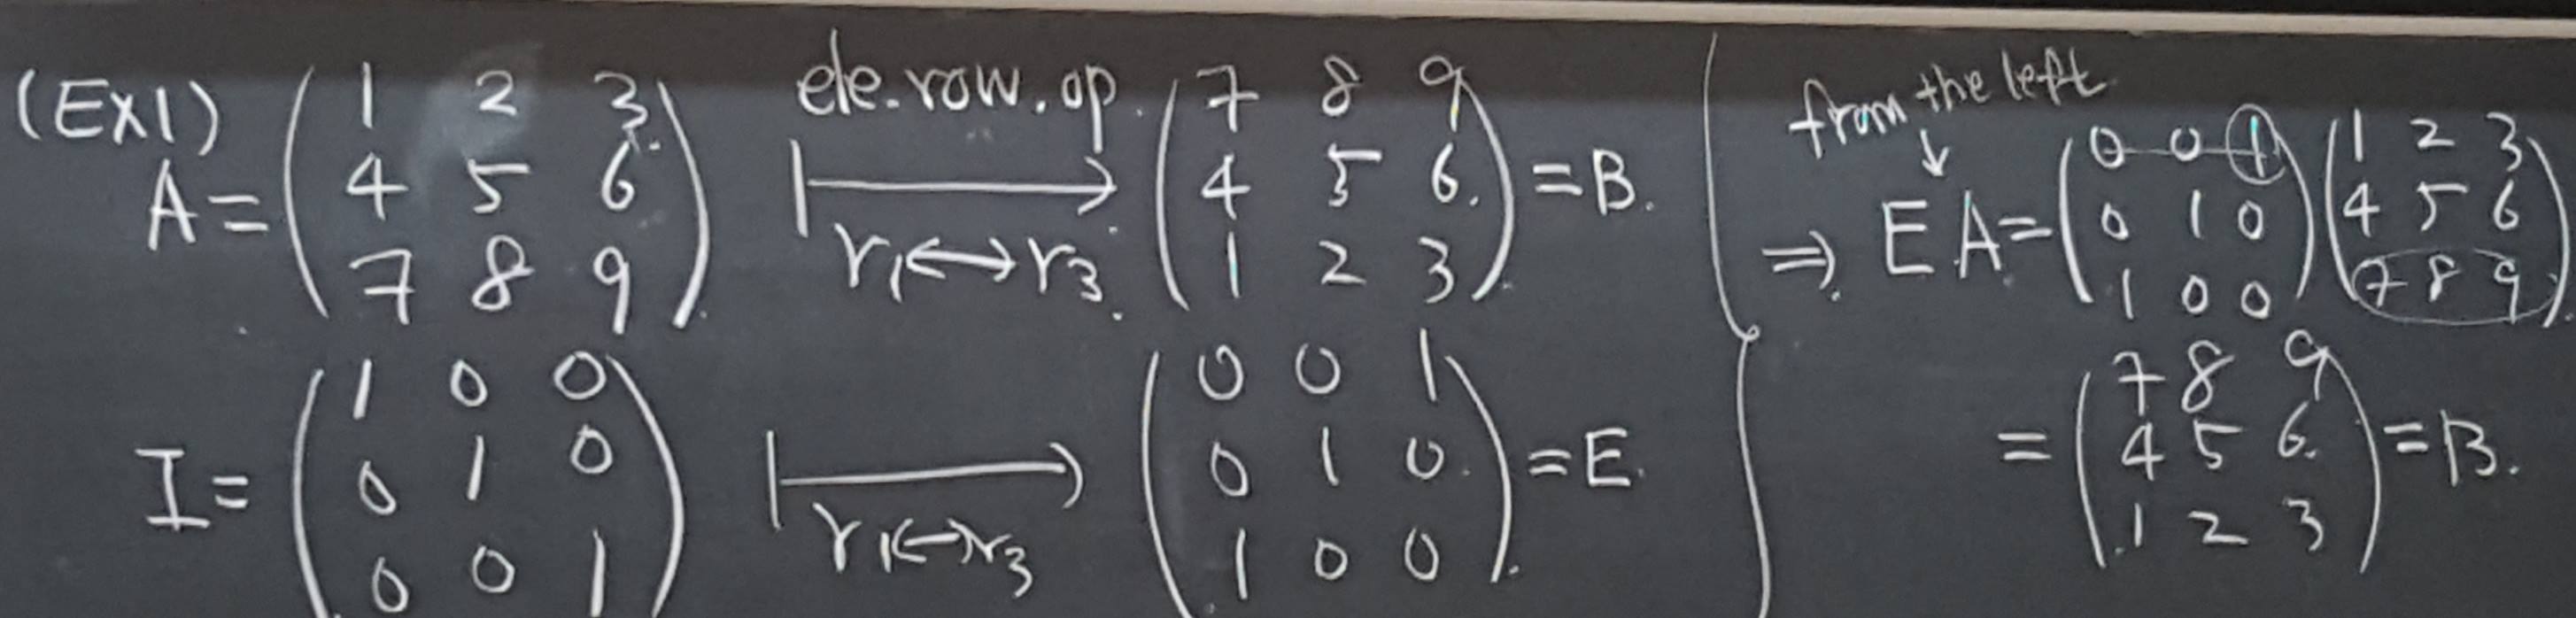 (Ex1)
A = ( 1 2 3
4 5 6
7 8 9 )
ele.row.op.
r₁ ↔ r₃.
( 7 8 9
4 5 6.
1 2 3 ) = B.
I = ( 1 0 0
0 1 0
0 0 1 )
r₁ ↔ r₃
( 0 0 1
0 1 0.
1 0 0 ) = E.
from the left
↓
⇒ E A = ( 0 0 1
0 1 0
1 0 0 ) ( 1 2 3
4 5 6
7 8 9 ).
= ( 7 8 9
4 5 6.
1 2 3 ) = B.